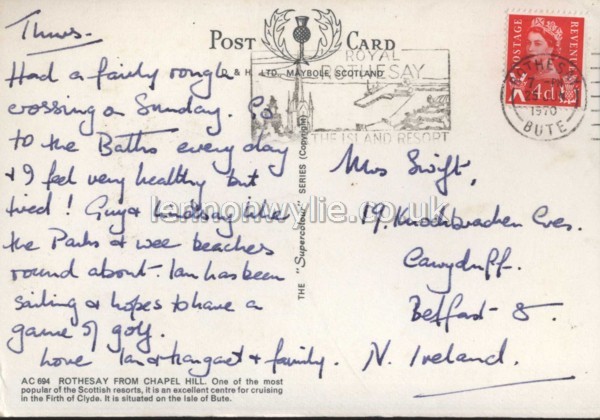 Thurs.
Had a fairly rough
crossing on Sunday. Go
to the Baths every day
& I feel very healthy but
tired! Guy & Lindsay like
the Parks & wee beaches
round about. Ian has been
sailing & hopes to have a
game of golf.
Love Ian & Margaret & family.
AC 694 ROTHESAY FROM CHAPEL HILL. One of the most
popular of the Scottish resorts, it is an excellent centre for cruising
in the Firth of Clyde. It is situated on the Isle of Bute.
POST CARD
D & H. LTD., MAYBOLE, SCOTLAND
THE "Supercolour" SERIES (Copyright)
ROYAL
ROTHESAY
THE ISLAND RESORT
POSTAGE
REVENUE
4d
ROTHESAY
1970
BUTE
Mrs Swift,
19. Knockbracken Cres.
Carryduff.
Belfast 8.
N. Ireland.
lennonwylie.co.uk